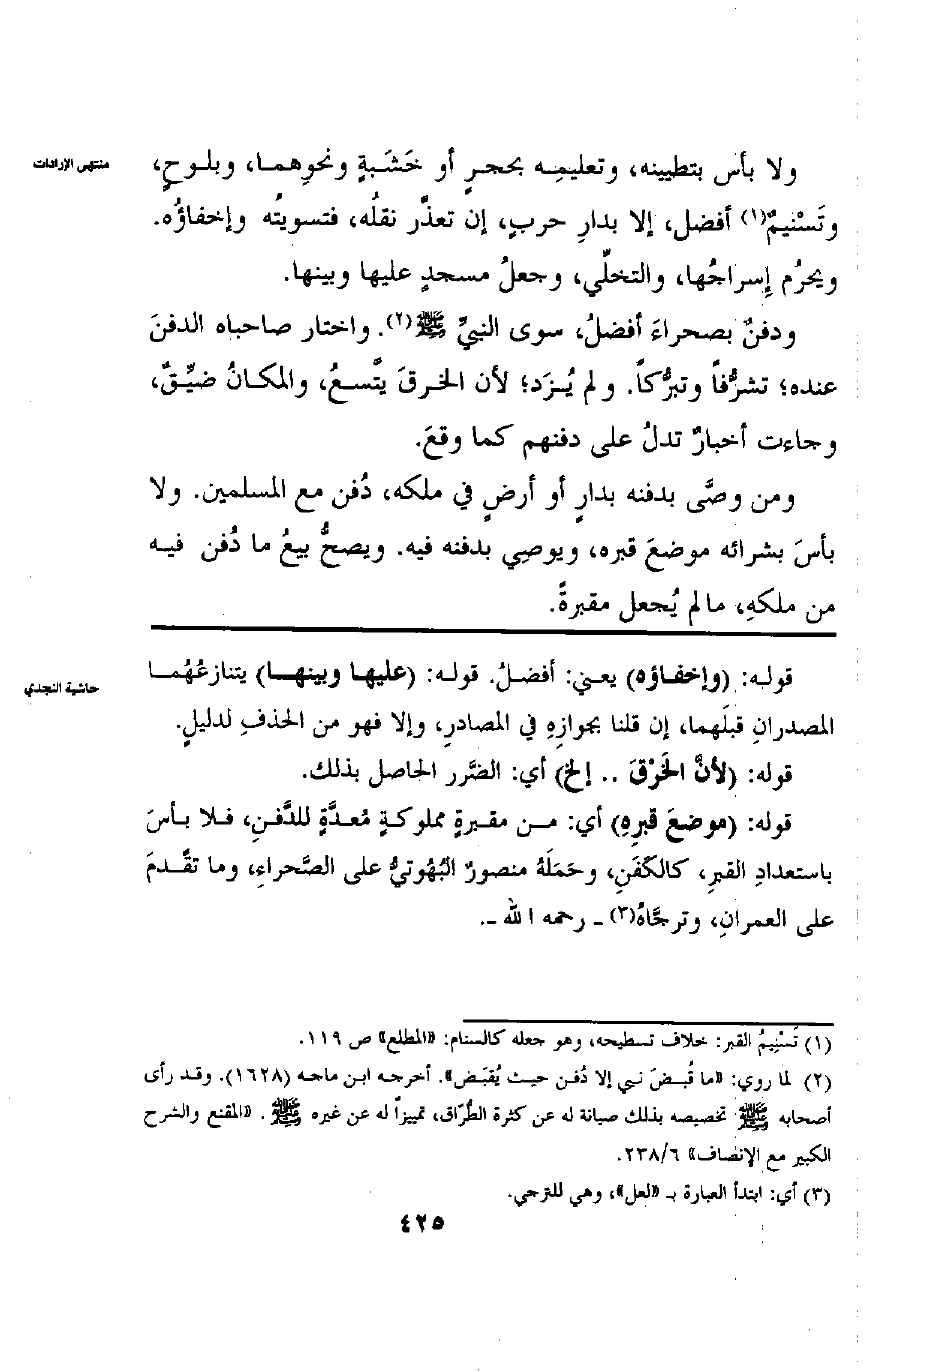 منتهى الإرادات
ولا بأس بتطيينه، وتعليمِه بحجرٍ أو خَشَبةٍ ونحوِهما، وبلوحٍ،
وتَسْنيمٌ(١) أفضل، إلا بدارِ حربٍ، إن تعذَّر نقلُه، فتسويتُه وإخفاؤُه.
ويحرُم إِسراجُها، والتخلّي، وجعلُ مسجدٍ عليها وبينها.
ودفنٌ بصحراءَ أفضلُ، سوى النبيِّ ﷺ(٢). واختار صاحباه الدفنَ
عنده؛ تشرُّفاً وتبرُّكاً. ولم يُزَد؛ لأن الخرقَ يتَّسعُ، والمكانُ ضيِّقٌ،
وجاءت أخبارٌ تدلُ على دفنهم كما وقعَ.
ومن وصَّى بدفنه بدارٍ أو أرضٍ في ملكه، دُفن مع المسلمين. ولا
بأسَ بشرائه موضعَ قبره، ويوصِي بدفنه فيه. ويصحُّ بيعُ ما دُفن فيه
من ملكهِ، مالم يُجعل مقبرةً.
حاشية النجدي
قوله: (وإخفاؤه) يعني: أفضلُ. قوله: (عليها وبينها) يتنازعُهُما
المصدرانِ قبلَهما، إن قلنا بجوازِهِ في المصادرِ، وإلا فهو من الحذفِ لدليلٍ.
قوله: (لأنَّ الخَرْقَ .. إلخ) أي: الضَّرر الحاصل بذلك.
قوله: (موضعَ قبرِهِ) أي: من مقبرةٍ مملوكةٍ مُعدَّةٍ للدَّفنِ، فلا بأسَ
باستعدادِ القبرِ، كالكَفَنِ، وحَمَلَهُ منصورٌ البُهُوتيُّ على الصَّحراءِ، وما تقَّدمَ
على العمرانِ، وترجَّاهُ(٣) ـ رحمه الله ـ.
(١) تَسْنِيمُ القبر: خلاف تسطيحه، وهو جعله كالسنام: «المطلع» ص ١١٩.
(٢) لما روي: «ما قُبضَ نبي إلا دُفن حيث يُقبَض». أخرجه ابن ماجه (١٦٢٨). وقد رأى
أصحابه ﷺ تخصيصه بذلك صيانة له عن كثرة الطُّرّاق، تمييزاً له عن غيره ﷺ . «المقنع والشرح
الكبير مع الإنصاف» ٢٣٨/٦.
(٣) أي: ابتدأ العبارة بـ «لعل»، وهي للترجي.
٤٢٥